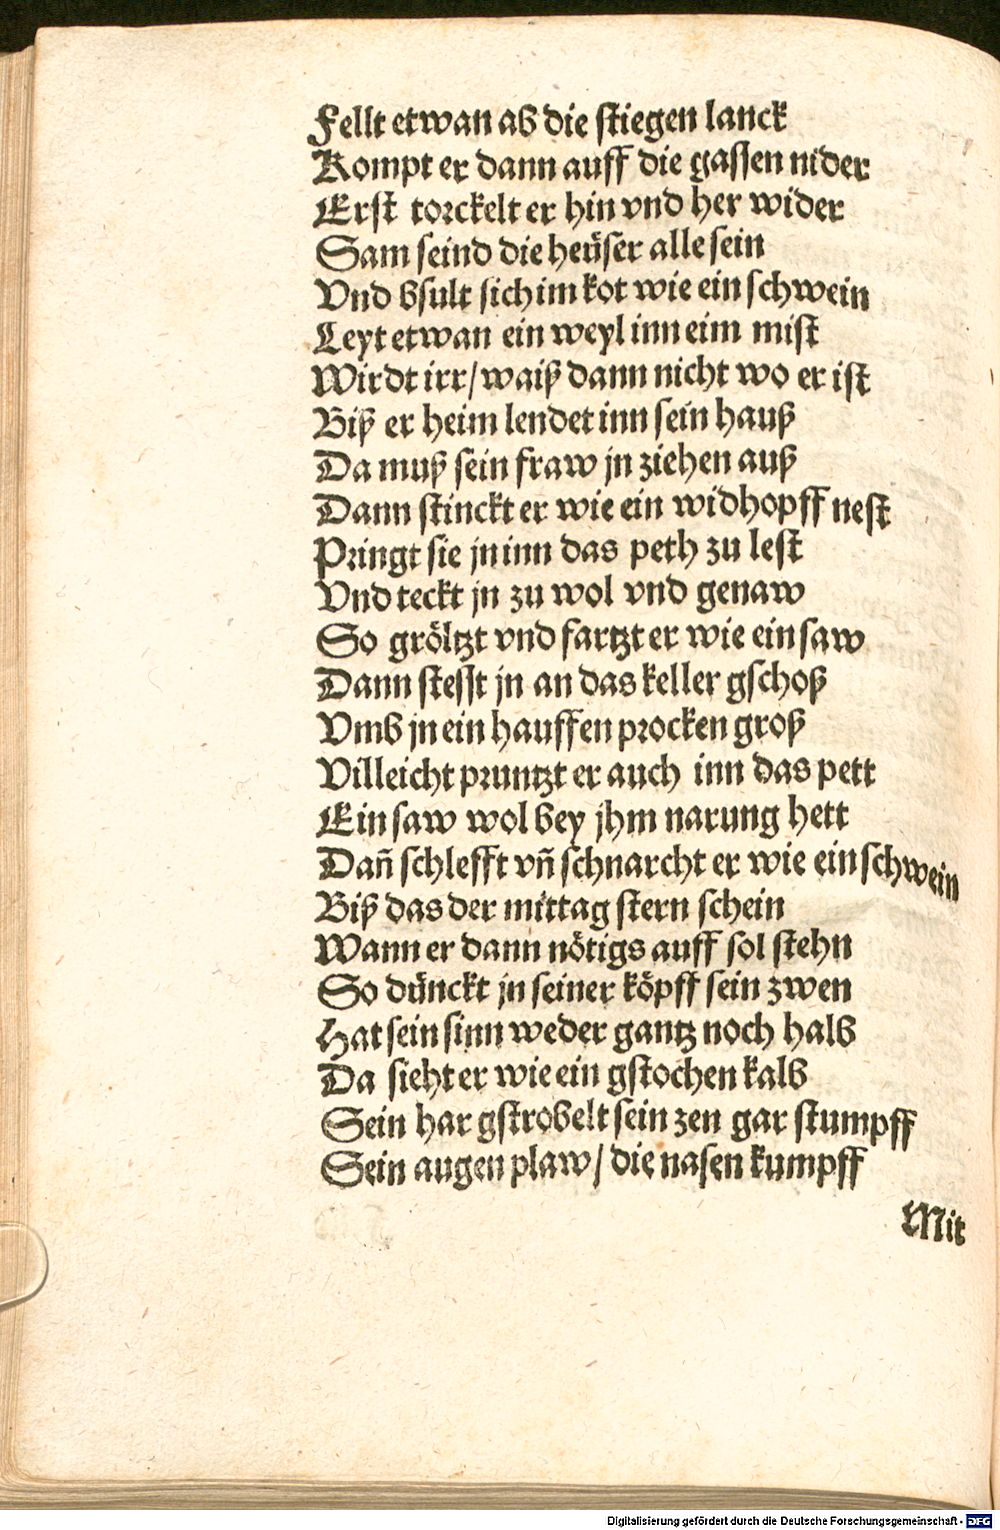 Fellt etwan ab die stiegen lanck
Kompt er dann auff die gassen nider
Erst torckelt er hin vnd her wider
Sam seind die heüser alle sein
Vnd bsult sich im kot wie ein schwein
Leyt etwan ein weyl inn eim mist
Wirdt irr/ waiß dann nicht wo er ist
Biß er heim lendet inn sein hauß
Da muß sein fraw jn ziehen auß
Dann stinckt er wie ein widhopff nest
Pringt sie jn inn das peth zu lest
Vnd teckt jn zu wol vnd genaw
So gröltzt vnd fartzt er wie ein saw
Dann stesst jn an das keller gschoß
Vmb jn ein hauffen procken groß
Villeicht pruntzt er auch inn das pett
Ein saw wol bey jhm narung hett
Dañ schlefft vñ schnarcht er wie ein schwein
Biß das der mittag stern schein
Wann er dann nötigs auff sol stehn
So dünckt jn seiner köpff sein zwen
Hat sein sinn weder gantz noch halb
Da sieht er wie ein gstochen kalb
Sein har gstrobelt sein zen gar stumpff
Sein augen plaw/ die nasen kumpff
Mit
Digitalisierung gefördert durch die Deutsche Forschungsgemeinschaft - DFG